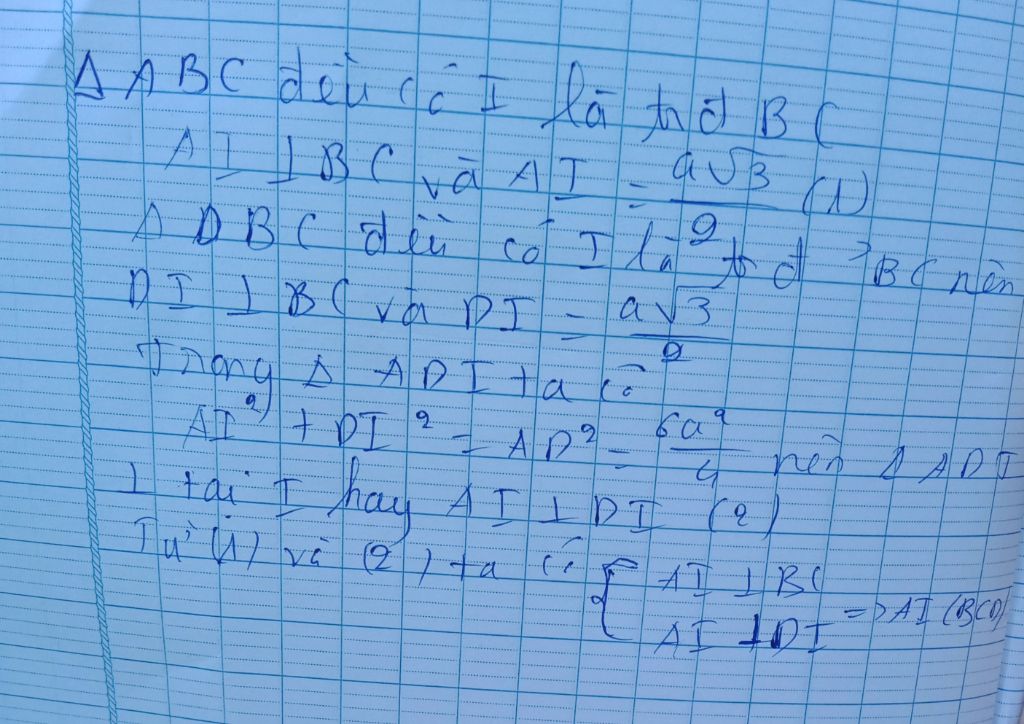 Δ ABC đều có I là trđ BC
AI ⊥ BC và AI = a√3/2 (1)
Δ DBC đều có I là trđ BC nên
DI ⊥ BC và DI = a√3/2
Trong Δ ADI ta có
AI² + DI² = AD² = 6a²/4 nên Δ ADI
⊥ tại I hay AI ⊥ DI (2)
Từ (1) và (2) ta có { AI ⊥ BC
AI ⊥ DI => AI (BCD)